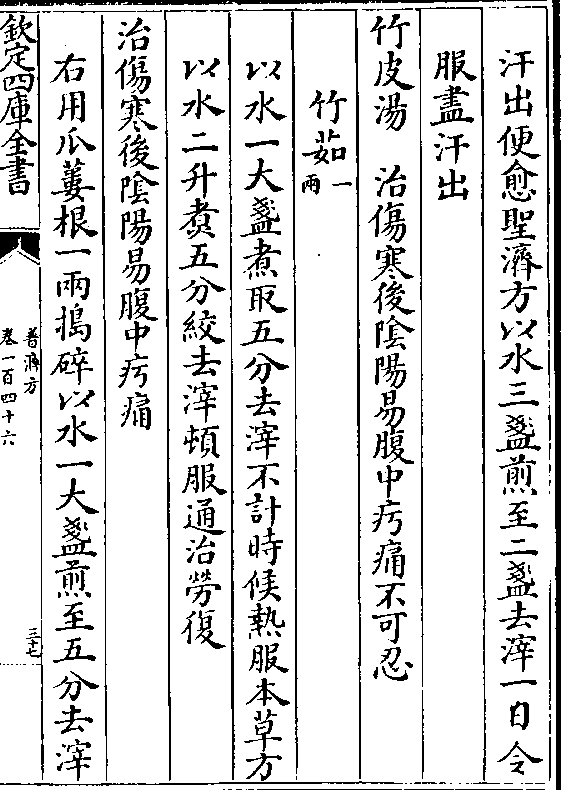 汗出便愈聖濟方以水三盞煎至二盞去滓一日令
服盡汗出
竹皮湯　治傷寒後陰陽易腹中㽲痛不可忍
竹茹一兩
以水一大盞煮取五分去滓不計時候熱服本草方
以水二升煮五分絞去滓頓服通治勞復
治傷寒後陰陽易腹中㽲痛
右用瓜蔞根一兩搗碎以水一大盞煎至五分去滓
欽定四庫全書
普濟方
卷一百四十六
三十七